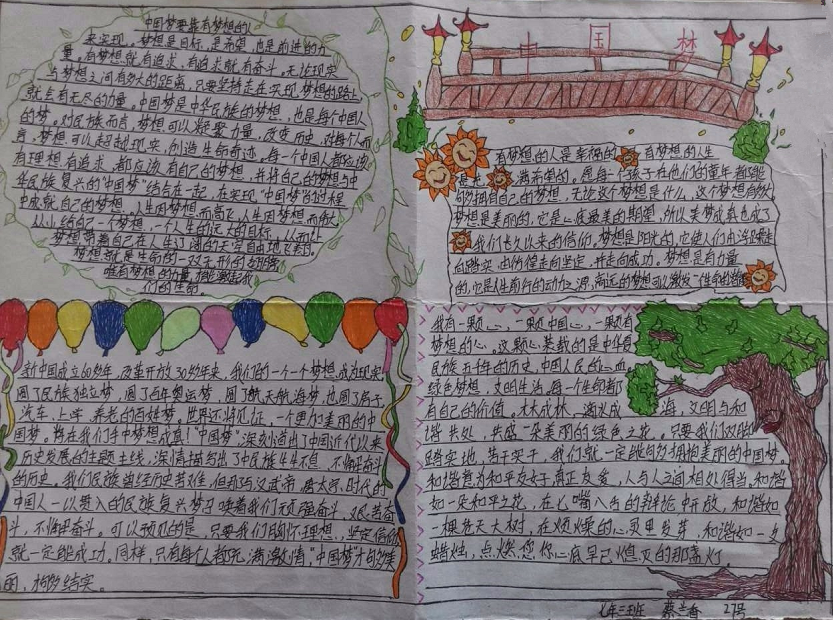 中国梦要靠有梦想的人
来实现。梦想是目标,是希望,也是前进的力
量。有梦想就有追求,有追求就有奋斗。无论现实
与梦想之间有多大的距离,只要坚持走在实现梦想的路上
就会有无尽的力量。中国梦是中华民族的梦想,也是每个中国人
的梦。对民族而言,梦想可以凝聚力量,改变历史,对每个人而
言,梦想可以超越现实,创造生命奇迹。每一个中国人都应该
有理想有追求,都应该有自己的梦想,并将自己的梦想与中
华民族复兴的“中国梦”结合在一起,在实现“中国梦”的过程
中成就自己的梦想。人生因梦想而高飞,人生因梦想而伟大
从小给自己一个梦想,一个人生的远大的目标,从而让
梦想带着自己在人生辽阔的天空自由地飞翔。
梦想就是生命的一双无形的翅膀
唯有梦想的力量,才能激起我
们的生命。
中 国 梦
有梦想的人是幸福的 有梦想的人生
是充 满希望的。愿每一个孩子在他们的童年都能
够拥有自己的梦想,无论这个梦想是什么,这个梦想有多大
梦想是美丽的,它是心底最美的期望,所以美梦成真也成了
我们长久以来的信仰,梦想是阳光的,它使人们由浮躁走
向踏实,由彷徨走向坚定,并走向成功。梦想是有力量
的,它是人生前行的动力之源,高远的梦想可以激发一个生命的潜能
新中国成立60多年,改革开放30多年来,我们的一个一个梦想成为现实
圆了民族独立梦,圆了百年奥运梦,圆了航天航海梦,也圆了房子
汽车、上学、养老的百姓梦,世界还将见证,一个更加美丽的中
国梦。将在我们手中梦想成真!“中国梦”深刻道出了中国近代以来
历史发展的主题主线,深情描绘出了中民族生生不息、不懈奋斗
的历史。我们民族曾经历苦难,但却与汉武帝、唐太宗,时代的
中国人一以贯入的民族复兴梦召唤着我们顽强奋斗、艰苦奋
斗、不懈奋斗。可以预见的是,只要我们胸怀理想、坚定信念
就一定能成功。同样,只有每个人都充满激情,“中国梦”才的多美
丽,才够结实。
我有一颗心,一颗中国心,一颗有
梦想的心。这颗心装载的是中华
民族五千年的历史,中国人民的心血
绿色梦想,文明生活,每一个生命都
有自己的价值。木木成林,滴水成 海,文明与和
谐共处,共成一朵美丽的绿色之花。只要我们双脚
踏实地,苦干实干,我们就一定能自多拥抱美丽的中国梦
和谐意为和平友好于真正友爱,人与人之间相处得当,和谐
如一朵和平之花,在七嘴八舌的辩论中开放,和谐如
一棵苍天大树,在烦燥的心灵里发芽,和谐如一支
蜡烛,点燃您你心底早已熄灭的那盏灯。
七年三班 蔡兰香 27号